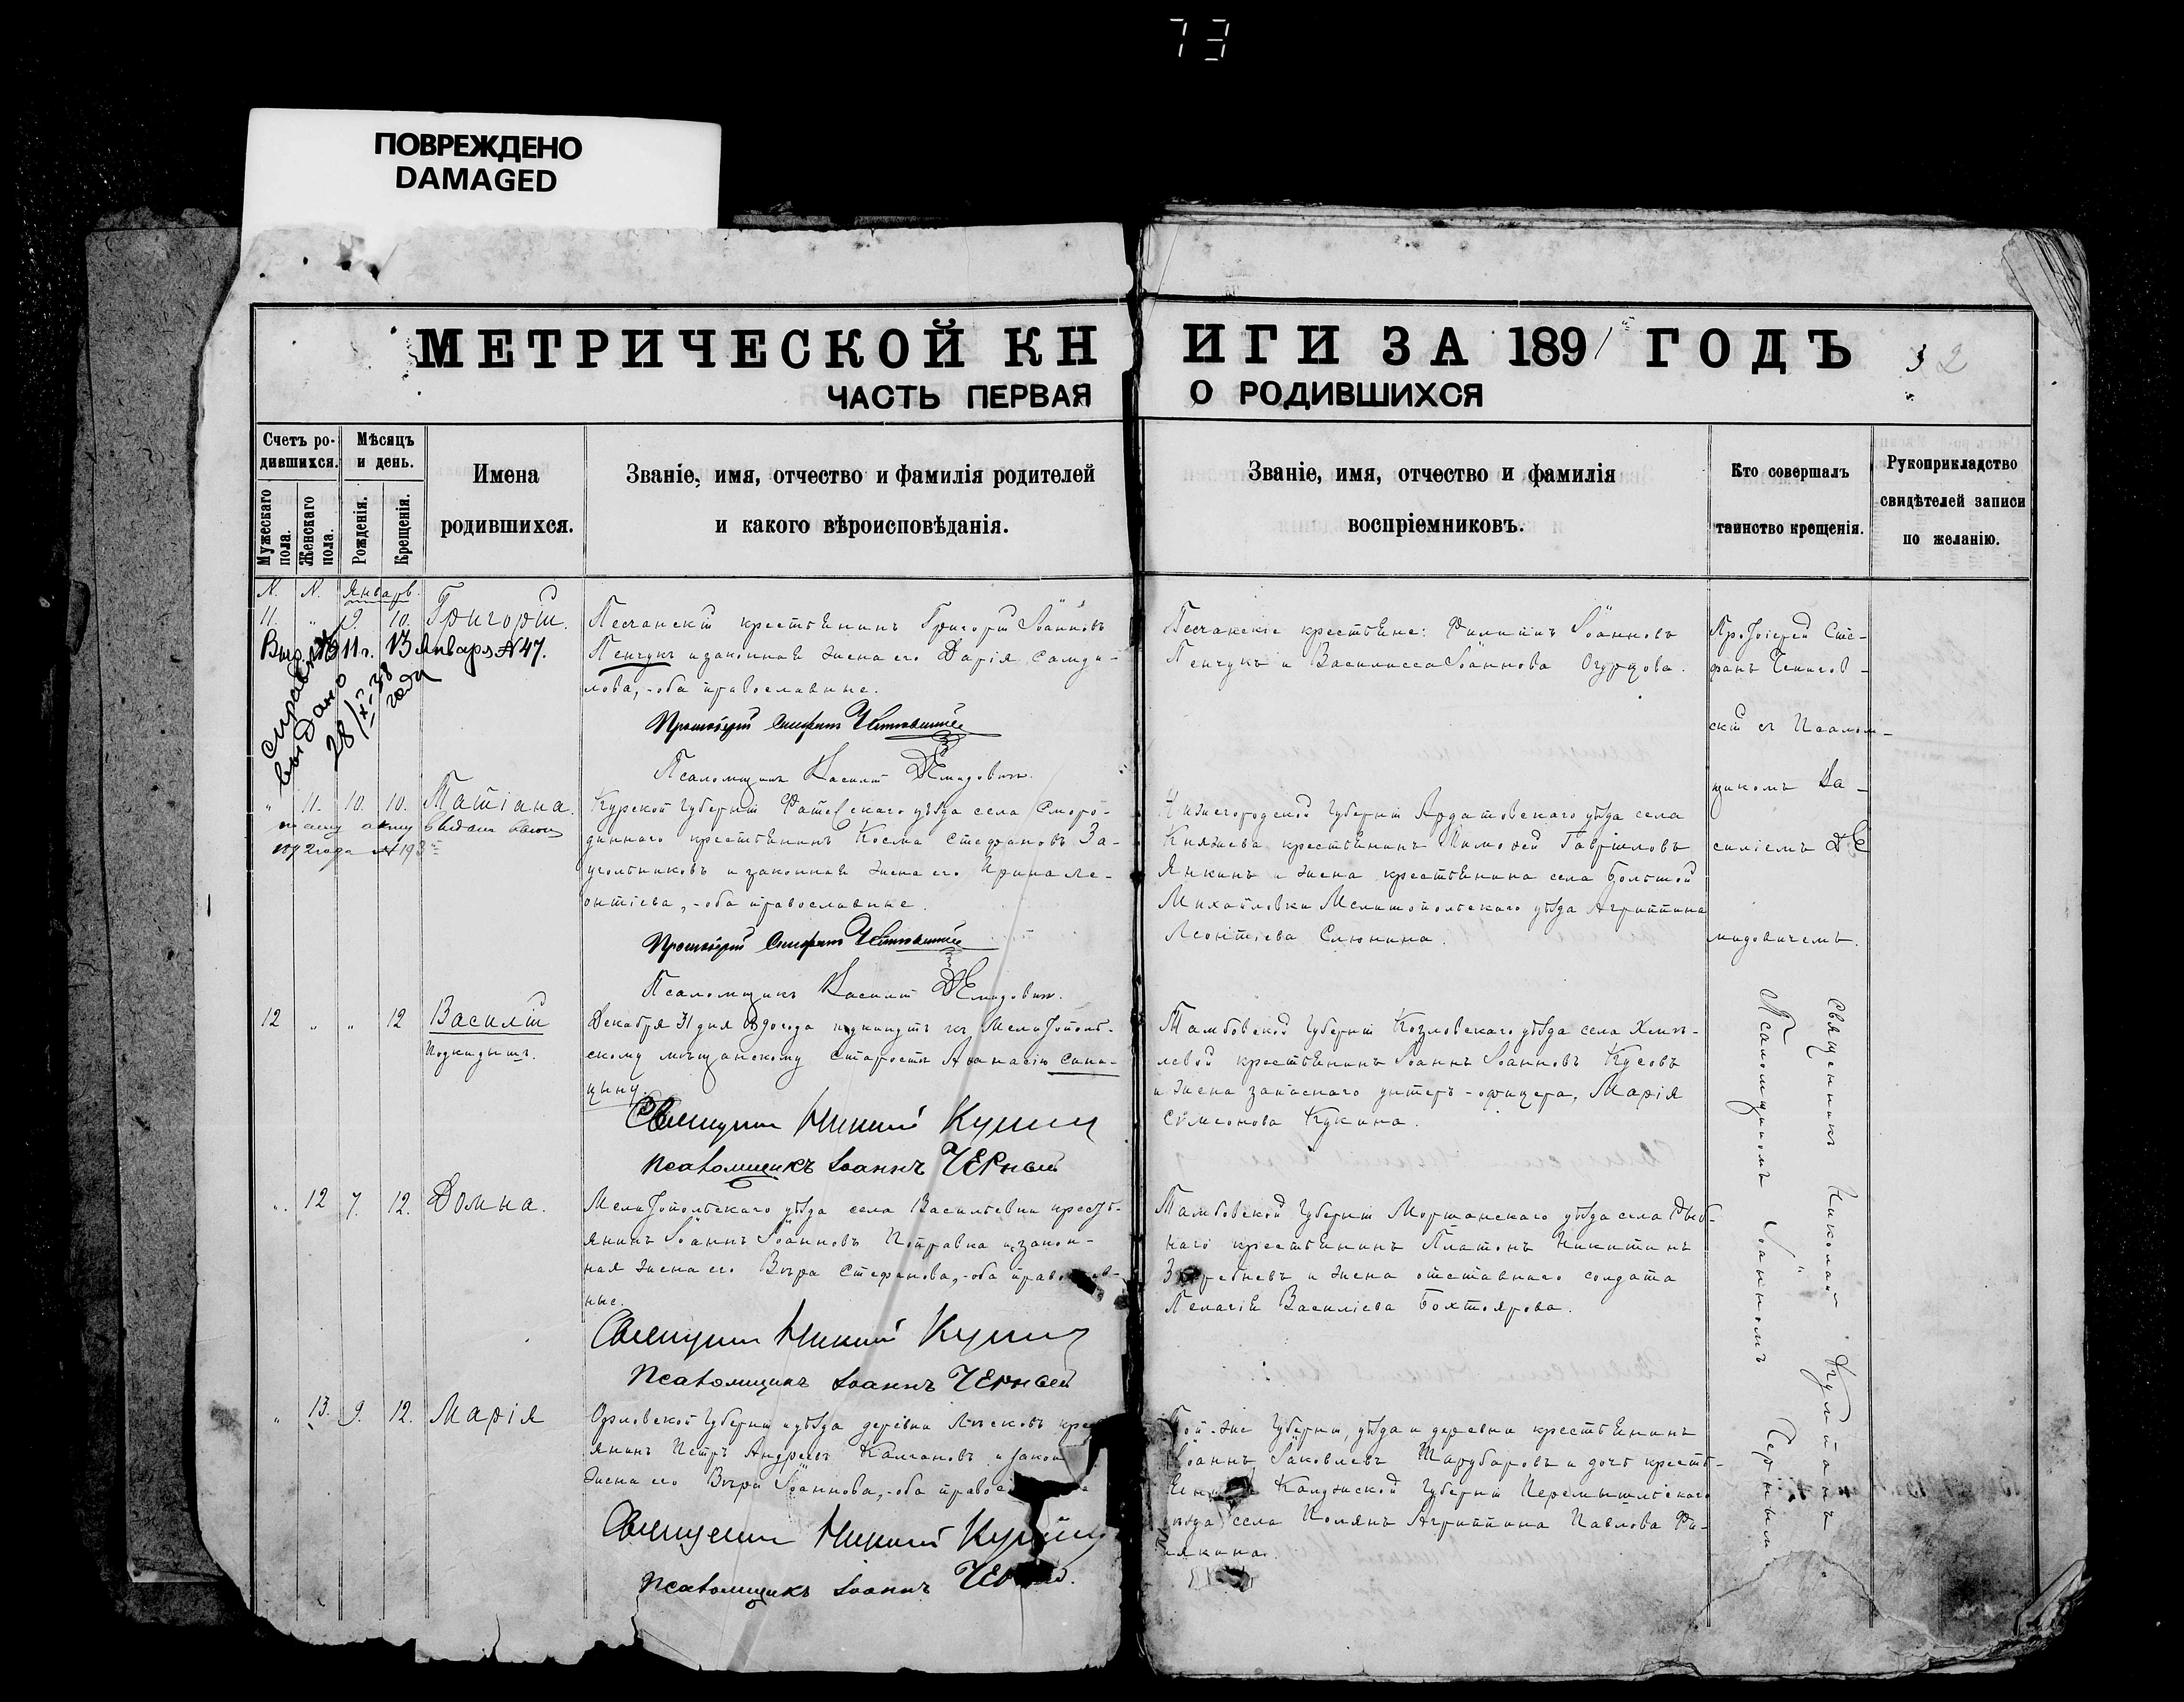 73
ПОВРЕЖДЕНО
DAMAGED
МЕТРИЧЕСКОЙ КНИГИ ЗА 1891 ГОДЪ
2
ЧАСТЬ ПЕРВАЯ О РОДИВШИХСЯ
Счетъ ро-
дившихся.
Мужескаго пола.
Женскаго пола.
Мѣсяцъ
и день.
Рожденія.
Крещенія.
Имена
родившихся.
Званіе, имя, отчество и фамилія родителей
и какого вѣроисповѣданія.
Званіе, имя, отчество и фамилія
воспріемниковъ.
Кто совершалъ
таинство крещенія.
Рукоприкладство
свидѣтелей записи
по желанію.
N. N. Январь.
11. " 9. 10. Григорій.
1911 г. 13 Января N 47.
справка
выдано
28/XI-38
года
Песчанскій крестьянинъ Григорій Іоанновъ
Пенчукъ и законная жена его Дарія Самуи-
лова, - оба православные.
Протоіерей Стефанъ
Псаломщикъ Василій Демидовичъ.
Песчанскіе крестьяне: Филиппъ Іоанновъ
Пенчукъ и Василисса Іоаннова Огурцова.
Протоіерей Сте-
фанъ
скій съ Псалом-
щикомъ Ва-
силіемъ Де
мидовичемъ.
" 11. 10. 10. Татіана.
Курской губерніи Фатежскаго уѣзда села Сморо-
диннаго крестьянинъ Косма Стефановъ За-
угольниковъ и законная жена его Ирина Ле-
онтіева, - оба православные.
Протоіерей Стефанъ
Псаломщикъ Василій Демидовичъ.
Нижегородской губерніи Ардатовскаго уѣзда села
Княжева крестьянинъ Тимофей Гавріиловъ
Янкинъ и жена крестьянина села Большой
Михайловки Мелитопольскаго уѣзда Агриппина
Леонтіева Слюнина.
12 " " 12 Василій
Подкидышъ.
Декабря 31 дня 1890 года подкинутъ къ Мелитополь-
скому мѣщанскому старостѣ Аѳанасію Сини-
цыну.
Священникъ Николай
Псаломщикъ Іоаннъ Черный
Тамбовской губерніи Козловскаго уѣзда села
левой крестьянинъ Іоаннъ Іоанновъ Кусовъ
и жена запаснаго унтеръ-офицера, Марія
Симеонова Кукина.
Священникъ Николай
Псаломщикомъ Іоанномъ Чернымъ
" 12 7. 12. Домна.
Мелитопольскаго уѣзда села Васильевки кресть-
янинъ Іоаннъ Іоанновъ Поправка и закон-
ная жена его Вѣра Стефанова, - оба православ-
ные.
Священникъ Николай
Псаломщикъ Іоаннъ Черный
Тамбовской губерніи Моршанскаго уѣзда села
наго крестьянинъ Платонъ Никитинъ
и жена отставнаго солдата
Пелагія Василіева Бохтоярова.
" 13. 9. 12. Марія
Орловской губерніи и уѣзда деревни Лѣсковъ
янинъ Петръ Андреевъ Колгановъ и закон
жена его Вѣра Іоаннова, - оба
Священникъ Николай
Псаломщикъ Іоаннъ
Той-же губерніи, уѣзда и деревни крестьянинъ
Іоаннъ Іаковлевъ Шарубаровъ и дочь кресть-
Калужской губерніи Перемышльскаго
уѣзда села Полянъ Агриппина Павлова Фи-